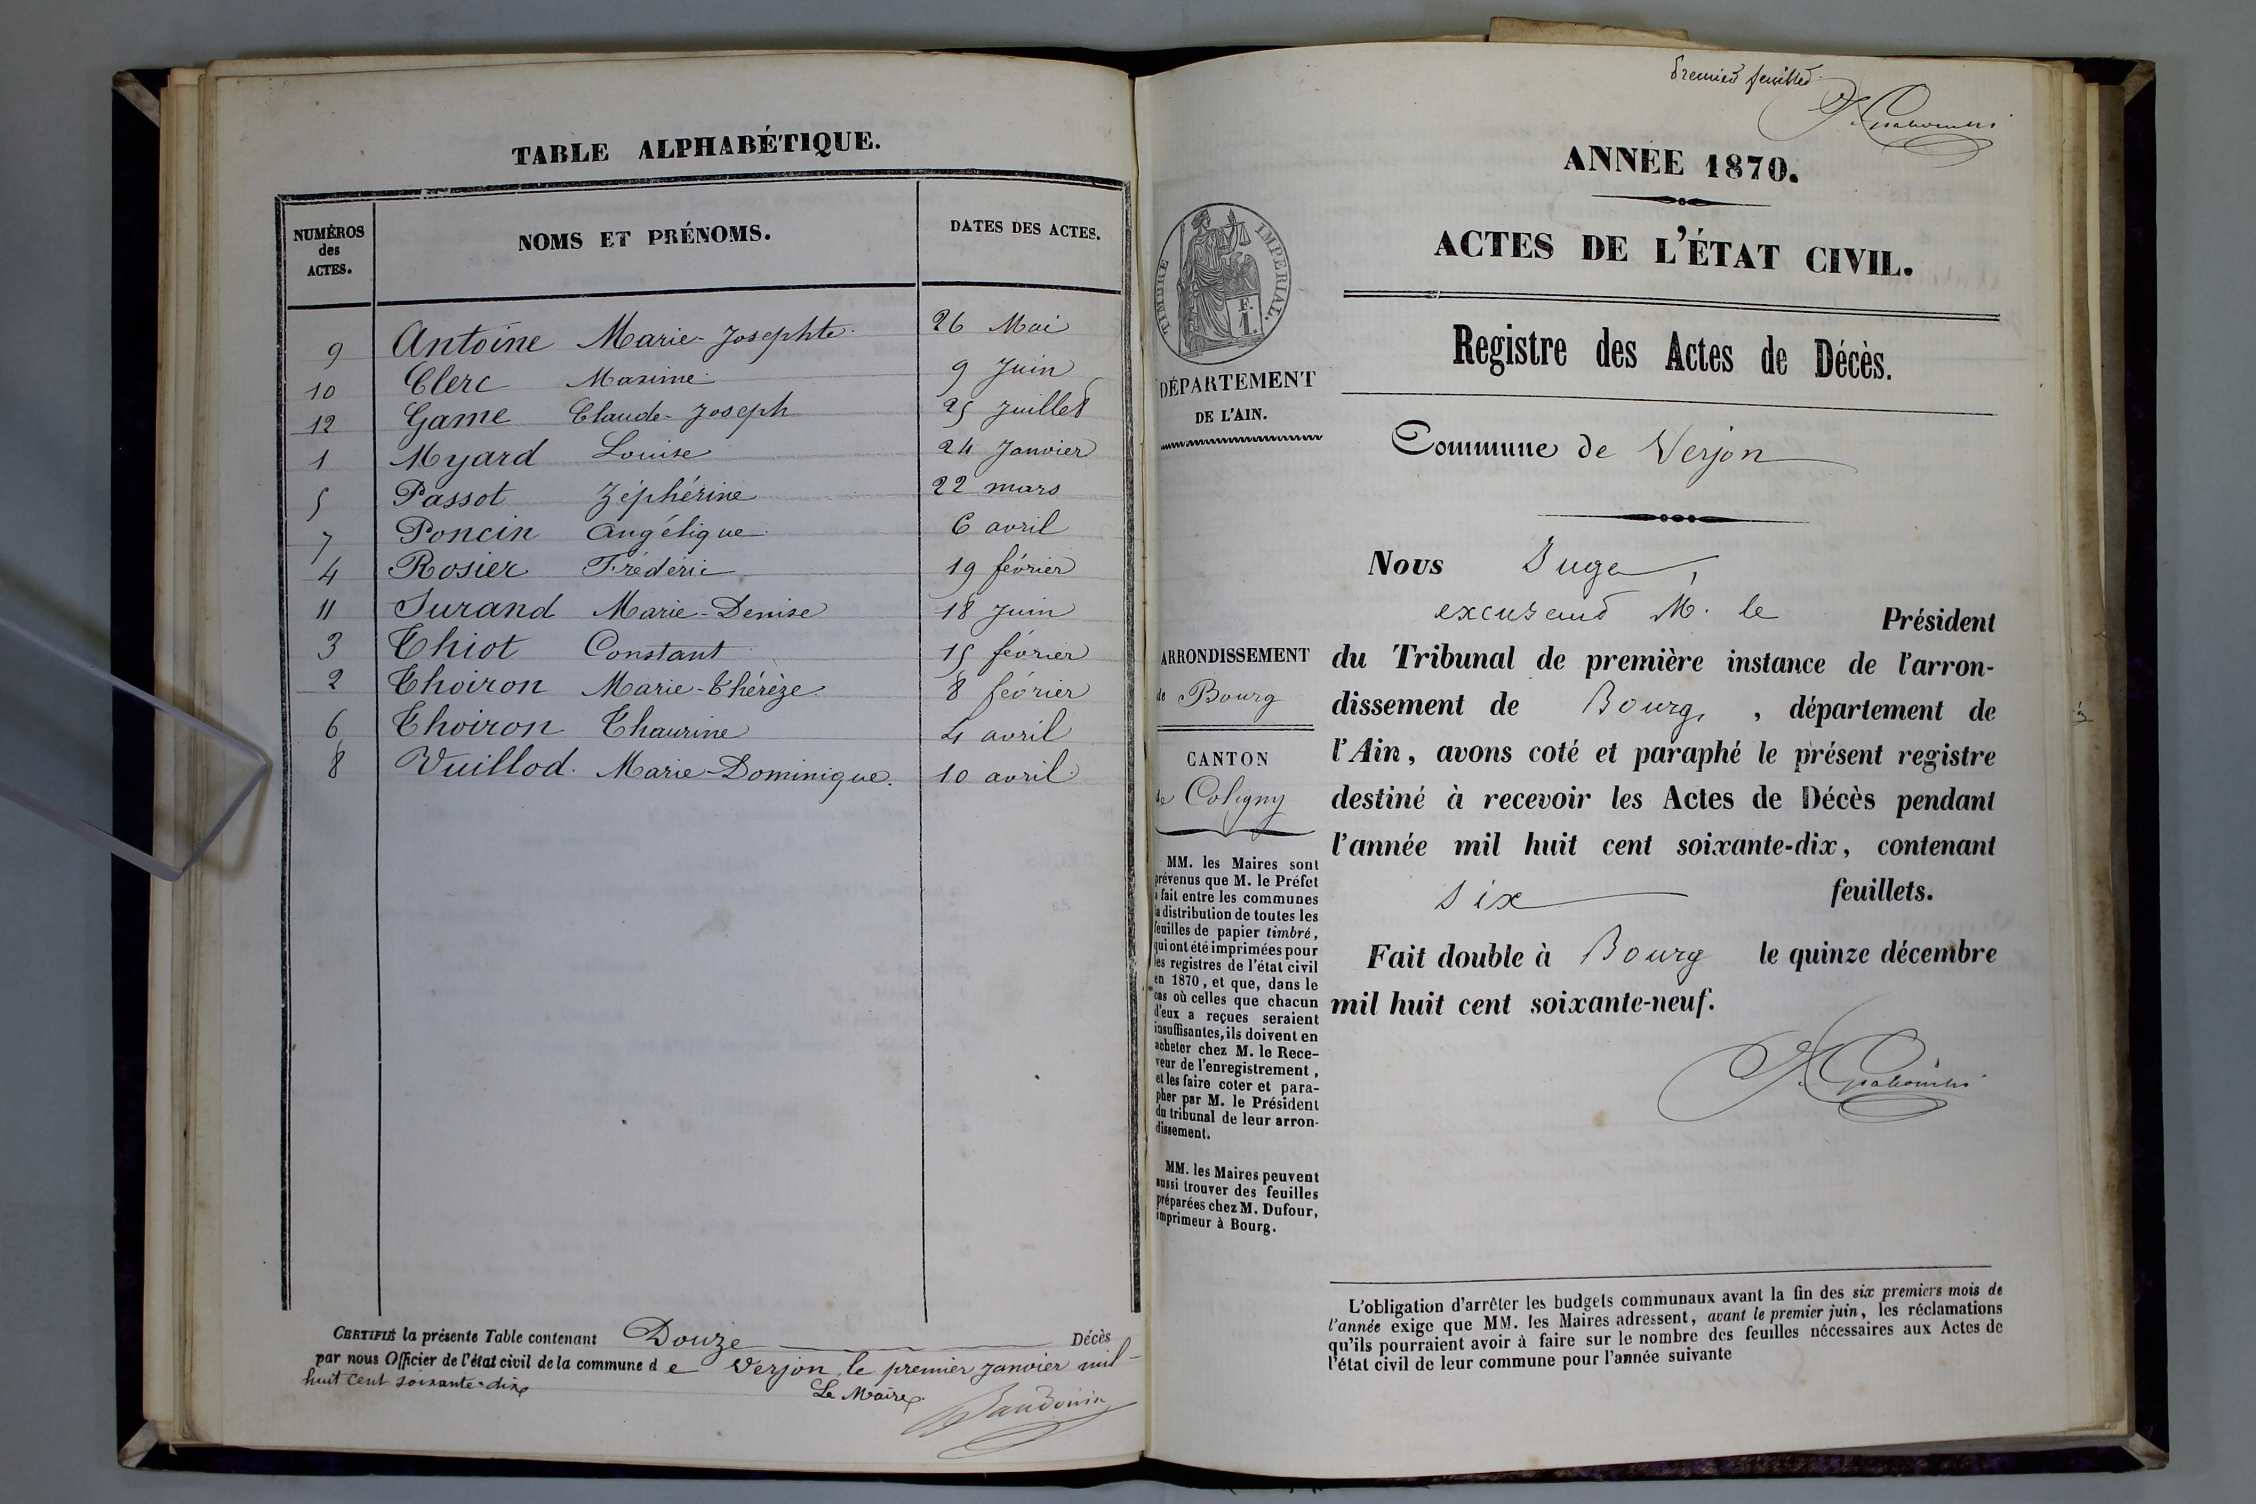 TABLE ALPHABÉTIQUE.
NUMÉROS
des
ACTES.
NOMS ET PRÉNOMS.
DATES DES ACTES.
9 Antoine Marie-Josephte 26 Mai
10 Clerc Maxime 9 Juin
12 Game Claude-Joseph 25 Juillet
1 Myard Louise 24 Janvier
5 Passot Zéphérine 22 mars
7 Poncin Angélique 6 avril
4 Rosier Frédéric 19 février
11 Surand Marie-Denise 18 Juin
3 Thiot Constant 15 février
2 Thoiron Marie-Thérèze 8 février
6 Thoiron Thaurine 4 avril
8 Vuillod Marie-Dominique. 10 avril
CERTIFIÉ la présente Table contenant Douze Décès
par nous Officier de l'état civil de la commune de Verjon, le premier janvier mil
huit cent soixante-dix
Le Maire
Baudouin
Premier feuillet
ANNÉE 1870.
ACTES DE L'ÉTAT CIVIL.
TIMBRE IMPÉRIAL.
F.
1.
Registre des Actes de Décès.
DÉPARTEMENT
DE L'AIN.
Commune de Verjon
Nous Juge,
excusant M. le Président
du Tribunal de première instance de l'arron-
dissement de Bourg, , département de
l'Ain, avons coté et paraphé le présent registre
destiné à recevoir les Actes de Décès pendant
l'année mil huit cent soixante-dix, contenant
six feuillets.
Fait double à Bourg le quinze décembre
mil huit cent soixante-neuf.
ARRONDISSEMENT
de Bourg
CANTON
de Coligny
MM. les Maires sont
prévenus que M. le Préfet
a fait entre les communes
la distribution de toutes les
feuilles de papier timbré,
qui ont été imprimées pour
les registres de l'état civil
en 1870, et que, dans le
cas où celles que chacun
d'eux a reçues seraient
insuffisantes, ils doivent en
acheter chez M. le Rece-
veur de l'enregistrement,
et les faire coter et para-
pher par M. le Président
du tribunal de leur arron-
dissement.
MM. les Maires peuvent
aussi trouver des feuilles
préparées chez M. Dufour,
imprimeur à Bourg.
L'obligation d'arrêter les budgets communaux avant la fin des six premiers mois de
l'année exige que MM. les Maires adressent, avant le premier juin, les réclamations
qu'ils pourraient avoir à faire sur le nombre des feuilles nécessaires aux Actes de
l'état civil de leur commune pour l'année suivante